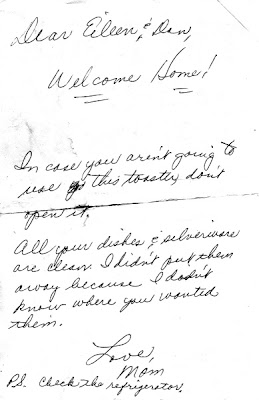 Dear Eileen & Dan,
Welcome Home!
In case you aren't going to
use this toaster, don't
open it.
All your dishes & silverware
are clean. I didn't put them
away because I didn't
know where you wanted
them.
Love,
Mom
P.S. Check the refrigerator.